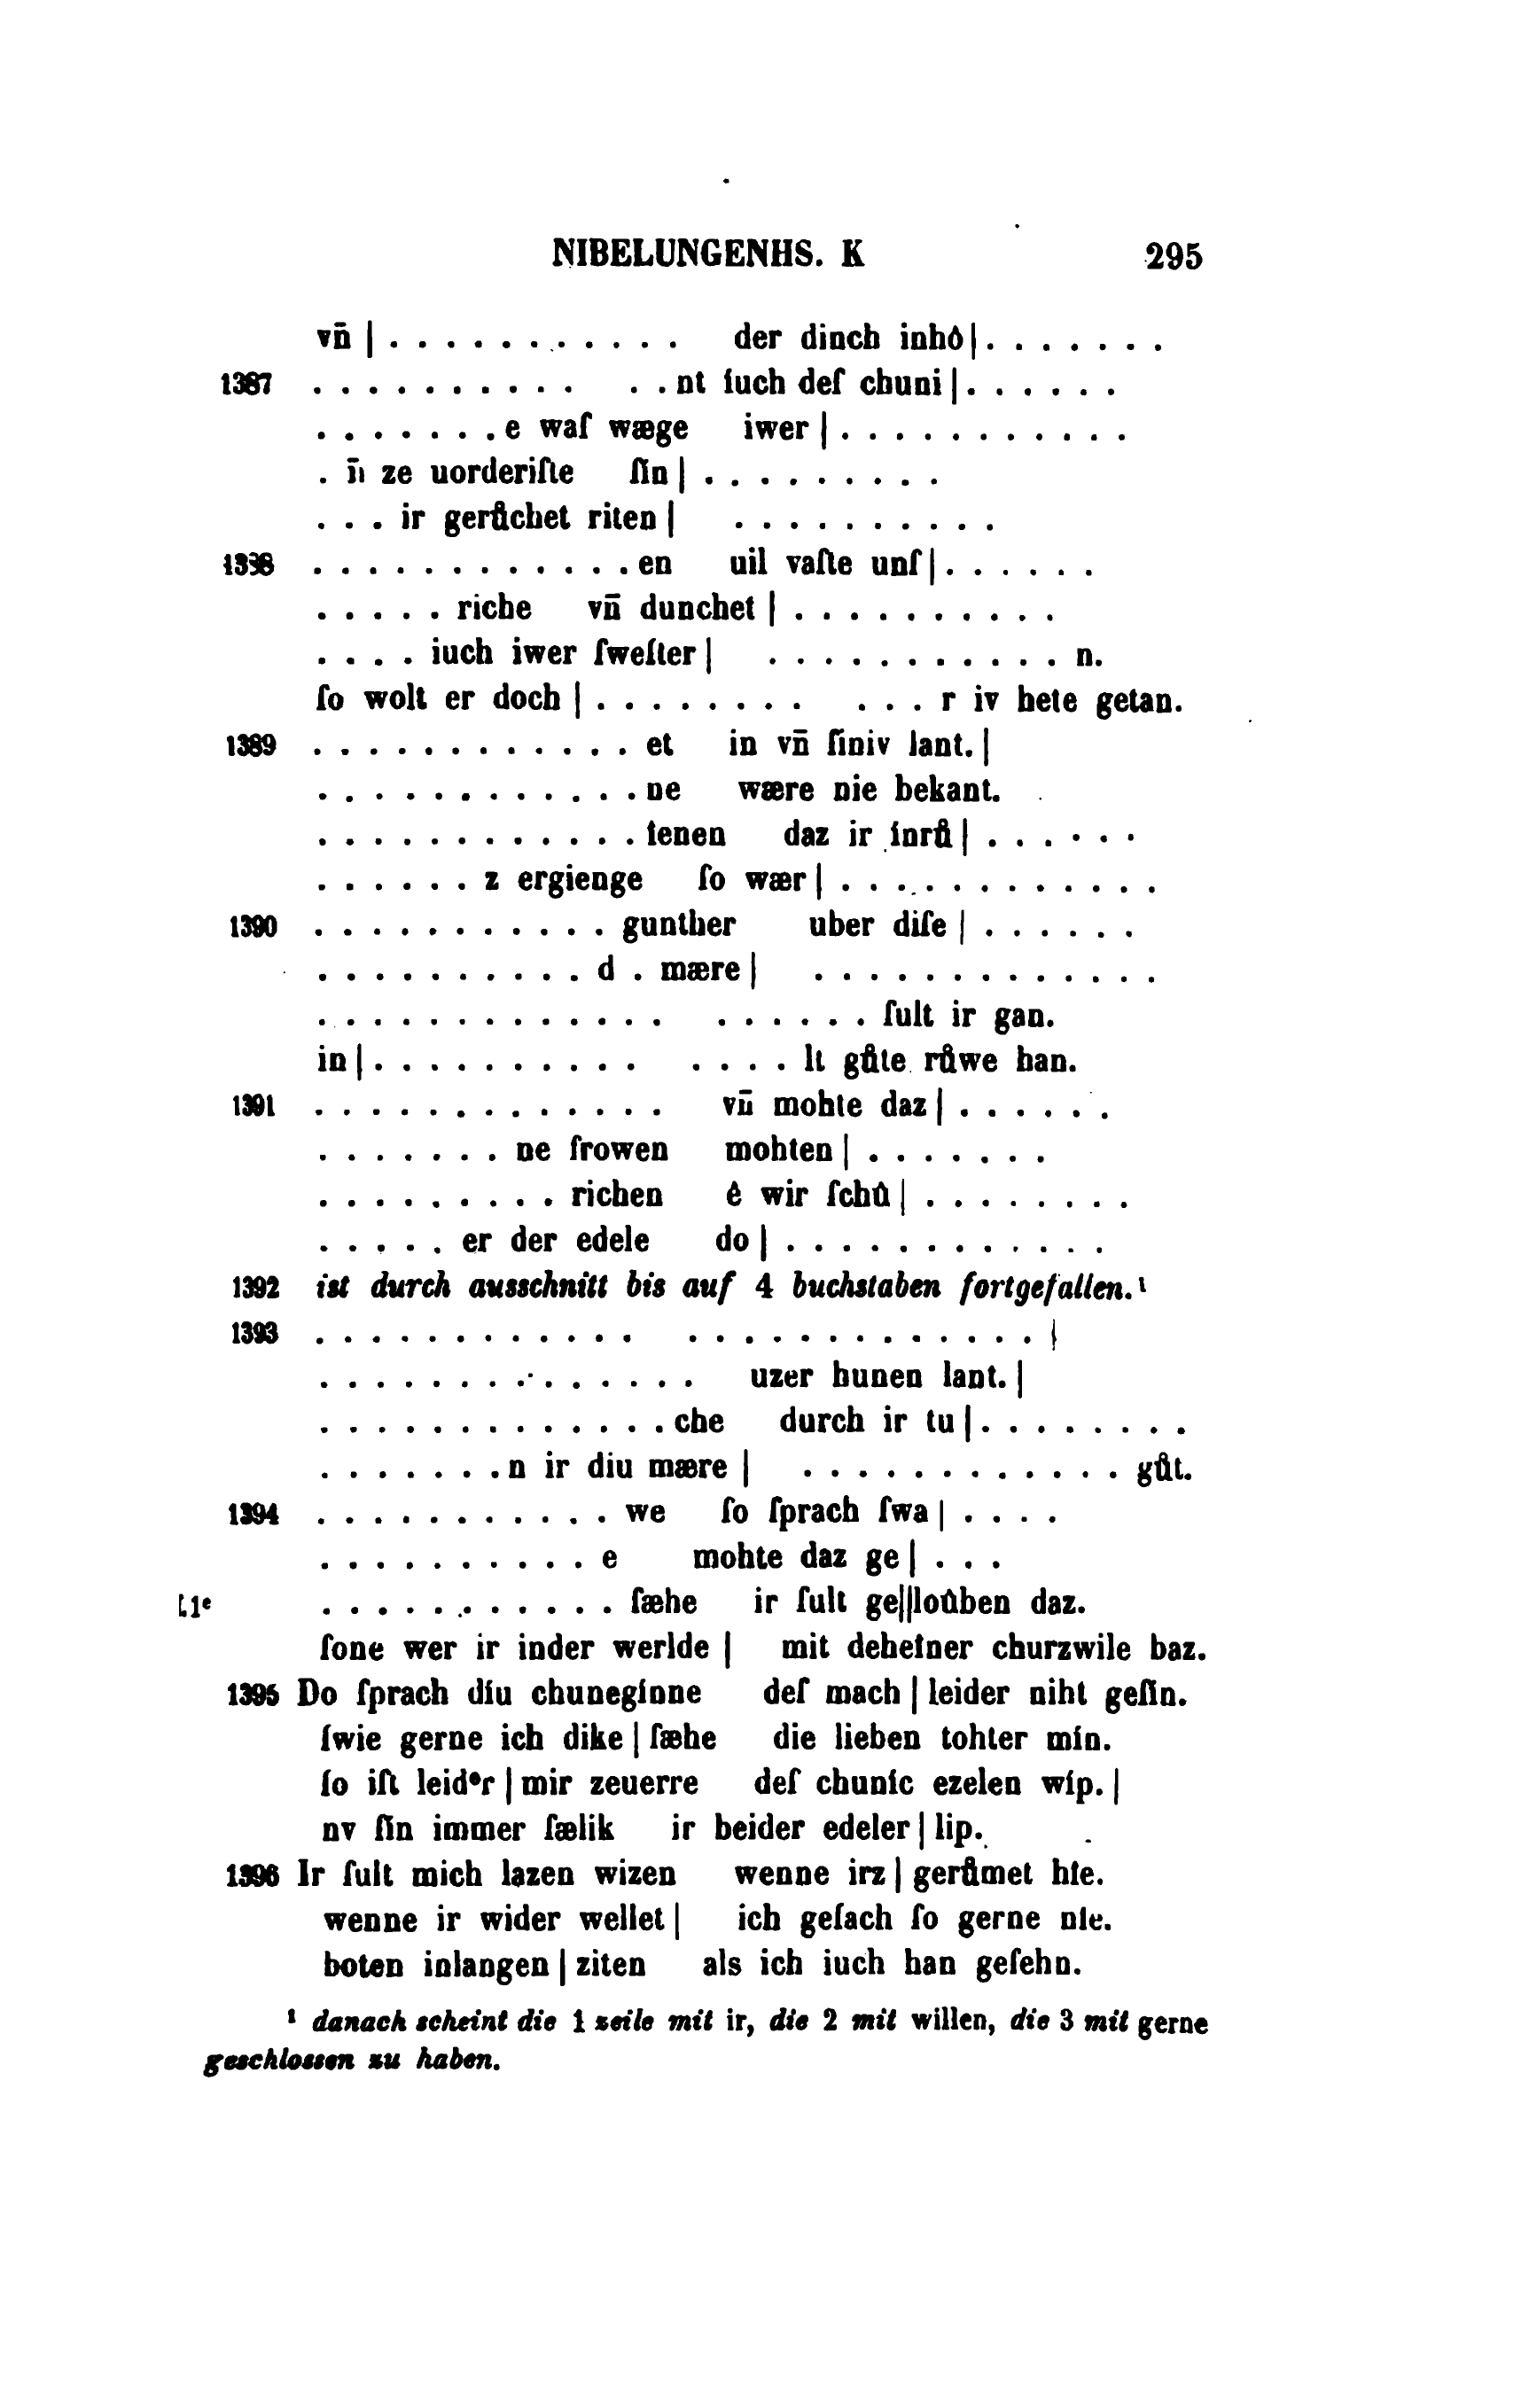 NIBELUNGENHS. K 295
vn̄ | . . . . . . . . . . . der dinch inhô | . . . . . . .
1387 . . . . . . . . . . . . nt íuch deſ chuni | . . . . . .
. . . . . . . e waſ wæge iwer | . . . . . . . . . . .
. n̄ ze uorderiſte ſin | . . . . . . . . .
. . . ir gerůchet riten | . . . . . . . . . .
1388 . . . . . . . . . . . . en uil vaſte unſ | . . . . . .
. . . . . riche vn̄ dunchet | . . . . . . . . . .
. . . . iuch iwer ſweſter | . . . . . . . . . . . n.
ſo wolt er doch | . . . . . . . . . . . r iv hete getan.
1389 . . . . . . . . . . . . et in vn̄ ſiniv lant. |
. . . . . . . . . . . . ne wære nie bekant.
. . . . . . . . . . . . tenen daz ir ínrů | . . . . . .
. . . . . . z ergienge ſo wær | . . . . . . . . . . . .
1390 . . . . . . . . . . . gunther uber diſe | . . . . . .
. . . . . . . . . . d . mære | . . . . . . . . . . . . .
. . . . . . . . . . . . . . . . . . . ſult ir gan.
in | . . . . . . . . . . . . . . lt gůte růwe han.
1391 . . . . . . . . . . . . . vn̄ mohte daz | . . . . . .
. . . . . . . ne frowen mohten | . . . . . . .
. . . . . . . . . richen ê wir ſchů | . . . . . . . .
. . . . . er der edele do | . . . . . . . . . . . .
1392 ist durch ausschnitt bis auf 4 buchstaben fortgefallen.¹
1393 . . . . . . . . . . . . . . . . . . . . . . . . . |
. . . . . . . . . . . . . . uzer hunen lant. |
. . . . . . . . . . . . . che durch ir tu | . . . . . . . .
. . . . . . . n ir diu mære | . . . . . . . . . . . . gůt.
1394 . . . . . . . . . . . we ſo ſprach ſwa | . . . .
. . . . . . . . . . e mohte daz ge | . . .
. . . . . . . . . . . ſæhe ir ſult ge||loůben daz.
ſone wer ir inder werlde | mit deheíner churzwile baz.
1395 Do ſprach díu chunegínne deſ mach | leider niht geſin.
ſwie gerne ich dike | ſæhe die lieben tohter mín.
ſo iſt leidᵉr | mir zeuerre deſ chuníc ezelen wíp. |
nv ſin immer ſælik ir beider edeler | lip.
1396 Ir ſult mich lazen wizen wenne irz | gerůmet híe.
wenne ir wider wellet | ich geſach ſo gerne níe.
boten inlangen | ziten als ich iuch han geſehn.
¹ danach scheint die 1 zeile mit ir, die 2 mit willen, die 3 mit gerne
geschlossen zu haben.